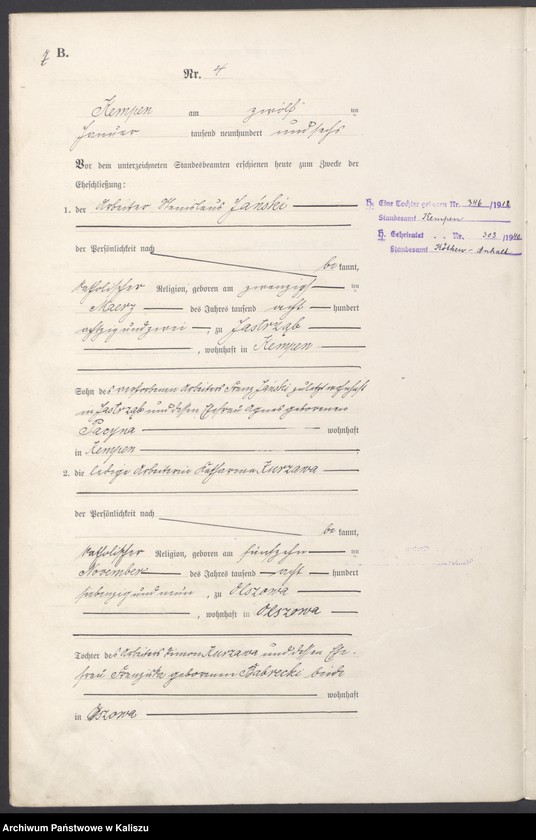 B.
Nr. 4
Kempen am zwölften
Januar tausend neunhundert und sechs
Vor dem unterzeichneten Standesbeamten erschienen heute zum Zwecke der
Eheschließung:
1. der Arbeiter Stanislaus Jański
der Persönlichkeit nach
bekannt,
katholischer Religion, geboren am zwanzigsten
Maerz des Jahres tausend acht hundert
achtzig und zwei, zu Jastrząb
, wohnhaft in Kempen
Sohn des verstorbenen Arbeiters Franz Jański zuletzt wohnhaft
in Jastrząb und dessen Ehefrau Agnes geborenen
wohnhaft
in Kempen
2. die ledige Arbeiterin Katharina Kurzawa
der Persönlichkeit nach
bekannt,
katholischer Religion, geboren am fünfzehnten
November des Jahres tausend acht hundert
siebenzig und neun, zu Olszowa
, wohnhaft in Olszowa
Tochter des Arbeiters Simon Kurzawa und dessen Ehe-
frau geborenen Babrecki beide
wohnhaft
in Olszowa
Eine Tochter geboren Nr. 346/1912
Standesamt Kempen
Geheiratet . . Nr. 303/1940
Standesamt Köthen-Anhalt
Archiwum Państwowe w Kaliszu